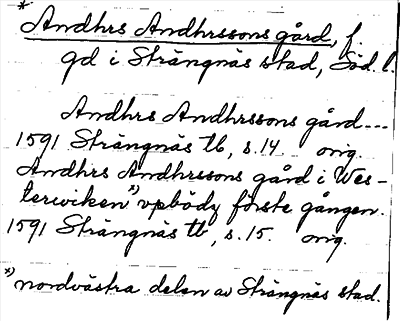 * Andhrs Andhrssons gård, f.
gd i Strängnäs stad, Söd. l.
Andhrs Andhrssons gård---
1591 Strängnäs tb, s. 14. orig.
Andhrs Andhrssons gård i Wes-
terwiken *) vpbödz förste gången.
1591 Strängnäs tb, s. 15. orig.
*) nordvästra delen av Strängnäs stad.